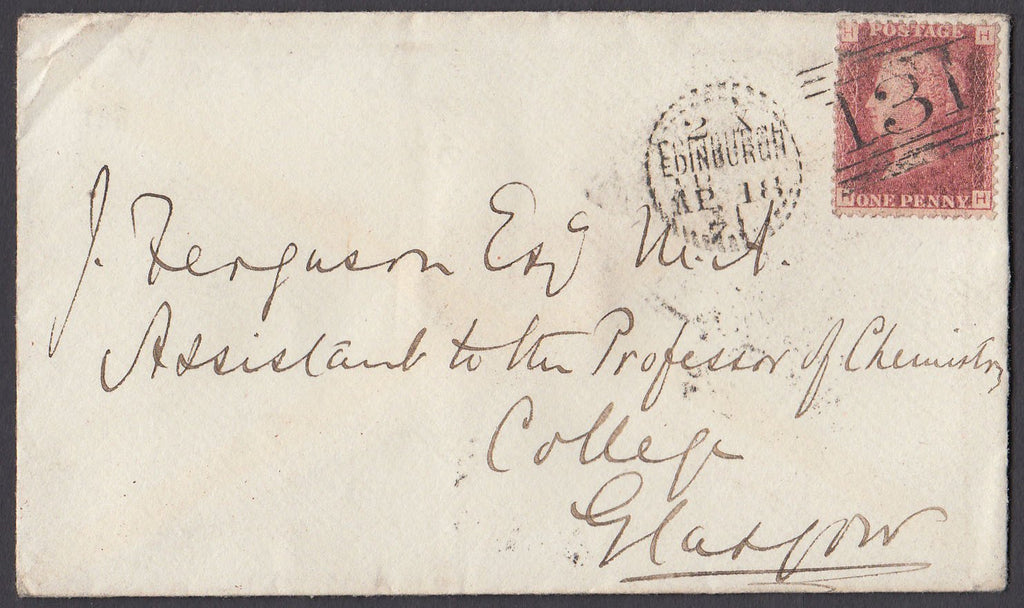 H POSTAGE H
131
2 X
EDINBURGH
AP 18
71
H ONE PENNY H
J. Ferguson Esq M.A.
Assistant to the Professor of Chemistry
College
Glasgow